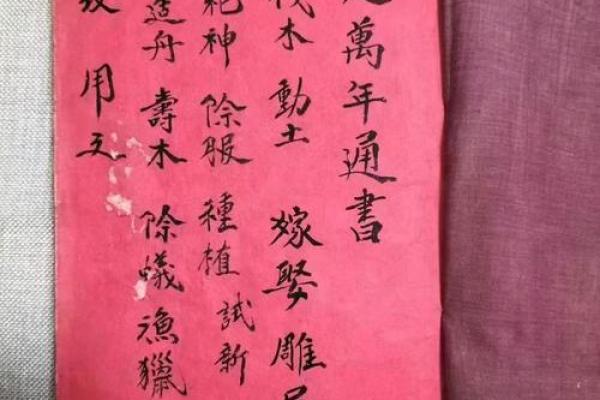 萬年通書
伐木 動土 嫁娶 雕
神 除服 種植 試新
造舟 壽木 除蟻 漁獵
用